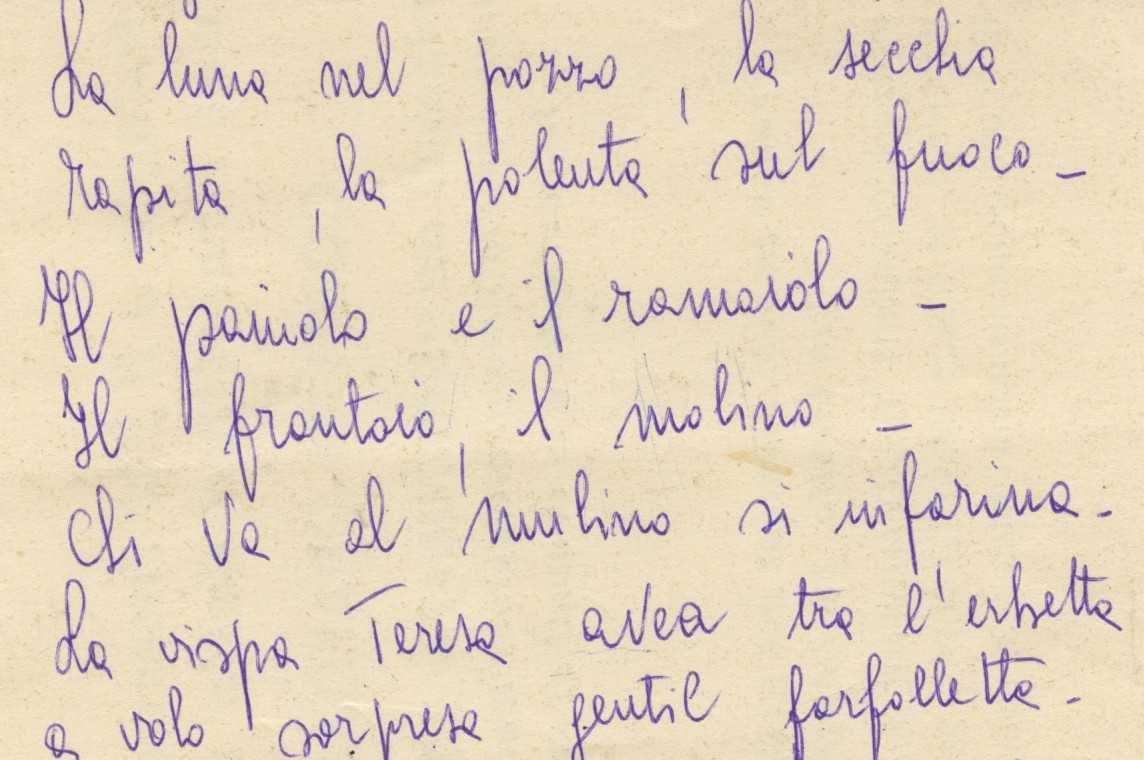 La luna nel pozzo, la secchia
rapita, la polenta sul fuoco -
Il paiuolo e il romaiolo -
Il frantoio, il molino -
Chi va al mulino si infarina -
La vispa Teresa avea tra l'erbetta
a volo sorpresa gentil farfalletta -